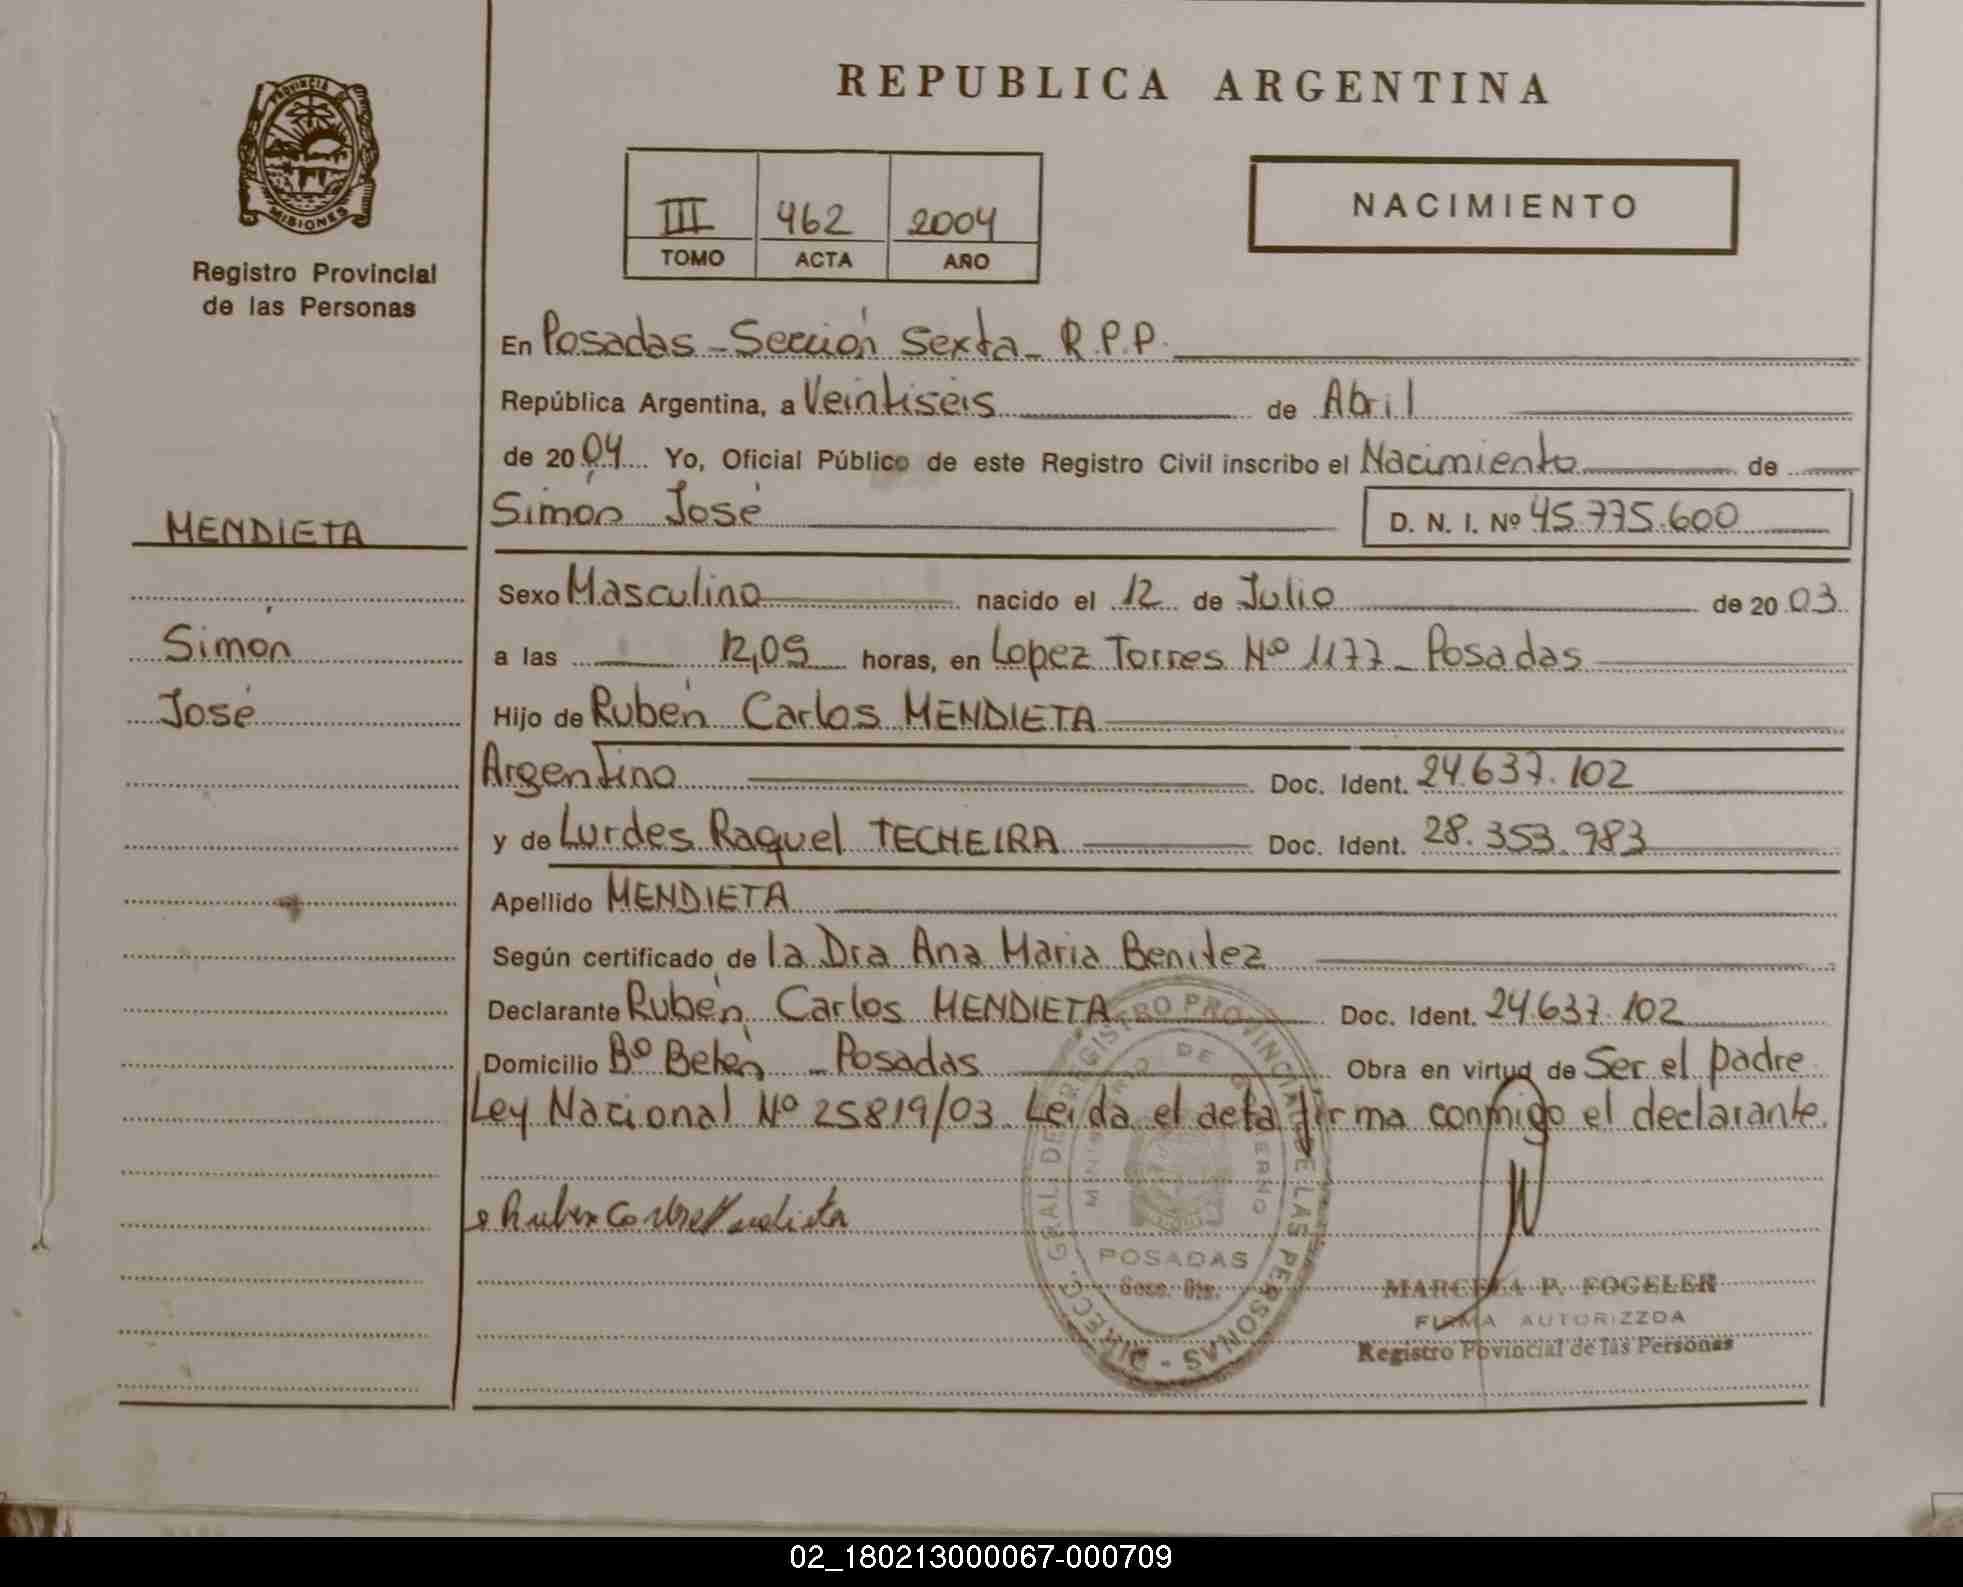 PROVINCIA DE
MISIONES
Registro Provincial
de las Personas
REPUBLICA ARGENTINA
III 462 2004
TOMO ACTA AÑO
NACIMIENTO
En Posadas - Sección Sexta - R.P.P.
República Argentina, a Veintiseis de Abril
de 2004 Yo, Oficial Público de este Registro Civil inscribo el Nacimiento de
Simón José D. N. I. Nº 45.775.600
MENDIETA
Simón
José
Sexo Masculino nacido el 12 de Julio de 20 03
a las 12,05 horas, en Lopez Torres Nº 1177 - Posadas
Hijo de Rubén Carlos MENDIETA
Argentino Doc. Ident. 24.637.102
y de Lurdes Raquel TECHEIRA Doc. Ident. 28.353.983
Apellido MENDIETA
Según certificado de la Dra Ana Maria Benitez
Declarante Rubén Carlos MENDIETA Doc. Ident. 24.637.102
Domicilio Bº Belén - Posadas Obra en virtud de Ser el padre
Ley Nacional Nº 25819/03. Leida el acta firma conmigo el declarante.
Ruben Carlos Mendieta
DIRECC. GRAL. DE REGISTRO PROVINCIAL DE LAS PERSONAS -
MINISTERIO DE GOBIERNO
POSADAS
MARCELA P. FOGELER
FIRMA AUTORIZZDA
Registro Povincial de las Personas
02_180213000067-000709